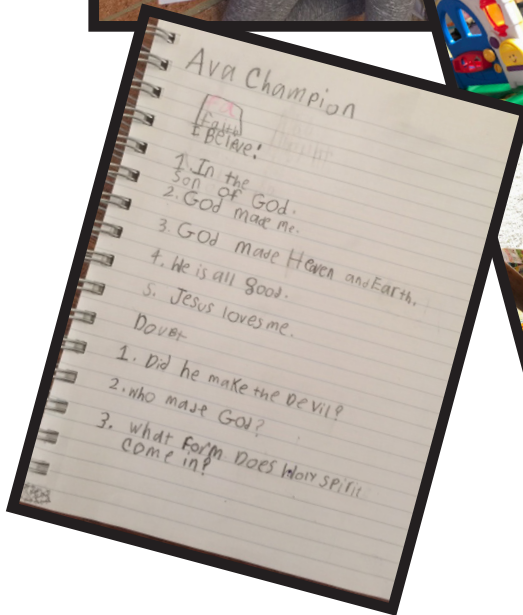 Ava Champion
Faith
I Beleive!
1. In the
Son of God.
2. God made me.
3. God made Heaven and Earth.
4. He is all good.
5. Jesus loves me.
Doubt
1. Did he make the Devil?
2. who made God?
3. what form Does Holy spirit
come in?